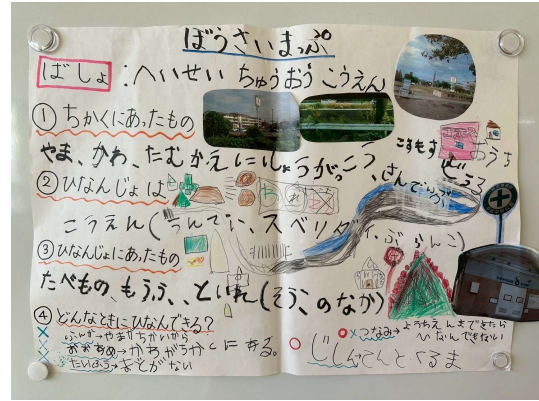 ぼうさいまっぷ
ばしょ：へいせい ちゅうおう こうえん
①ちかくにあったもの
やま、かわ、たむかえにししょうがっこう、さんでんぶ
こすもす
おうち
どうろ
②ひなんじょは
こうえん(うんてい、スベリダイ、ぶらんこ)
③ひなんじょにあったもの
たべもの、もうふ、といれ(そうこのなか)
④どんなときにひなんできる?
ふんか→やまがちかいから
おおあめ→かわがちかくにある。
たいふう→まどがない
じしん→てんとくるま
つなみ→ようちえんまできたら
ひなんできない